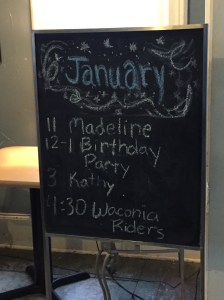 January
11 Madeline
12-1 Birthday
Party
3 Kathy
4:30 Waconia
Riders